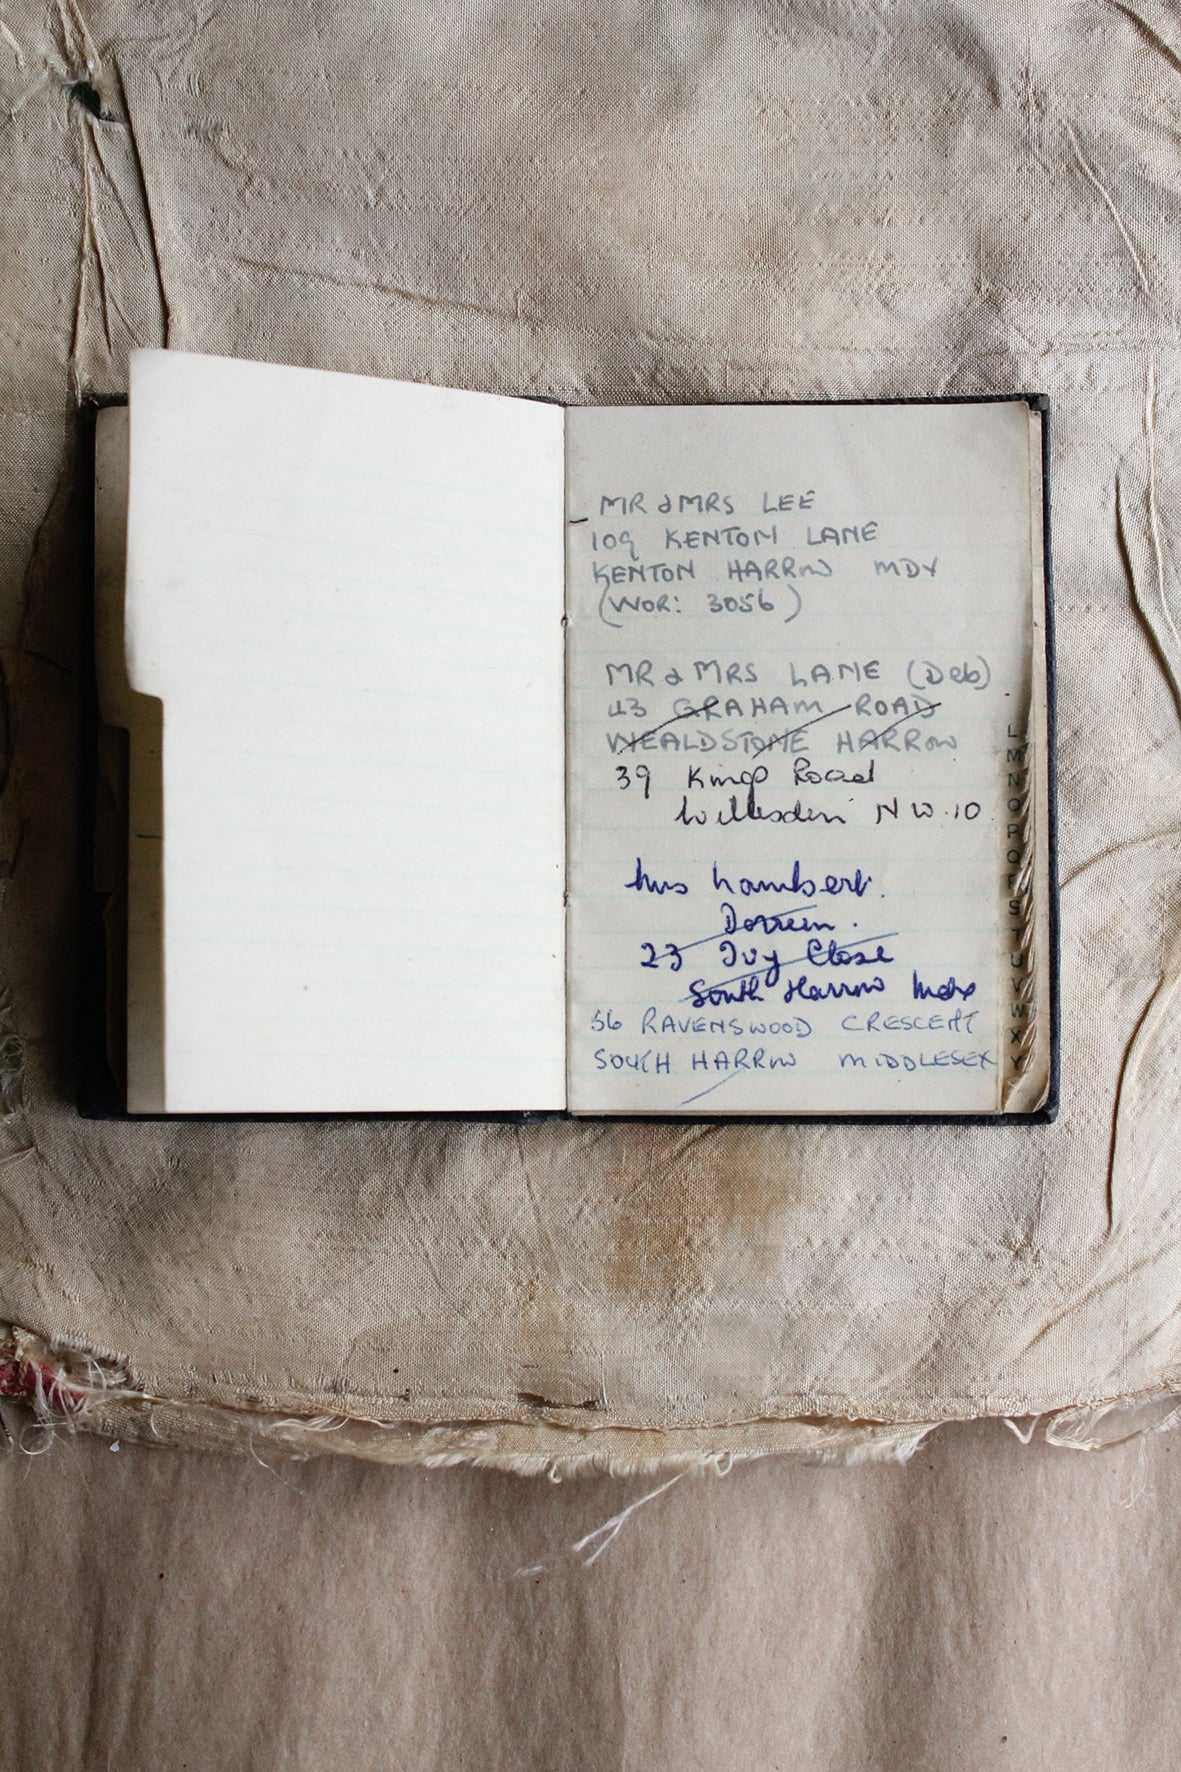 MR & MRS LEE
109 KENTON LANE
KENTON HARROW MDX
(WOR: 3056)
MR & MRS LANE (Deb)
43 GRAHAM ROAD
WEALDSTONE HARROW
39 Kings Road
Willesden N W 10
Mrs Lambert.
Dorreen.
23 Ivy Close
South Harrow Mdx
56 RAVENSWOOD CRESCENT
SOUTH HARROW MIDDLESEX
L
M
N
O
P
Q
R
S
T
U
V
W
X
Y